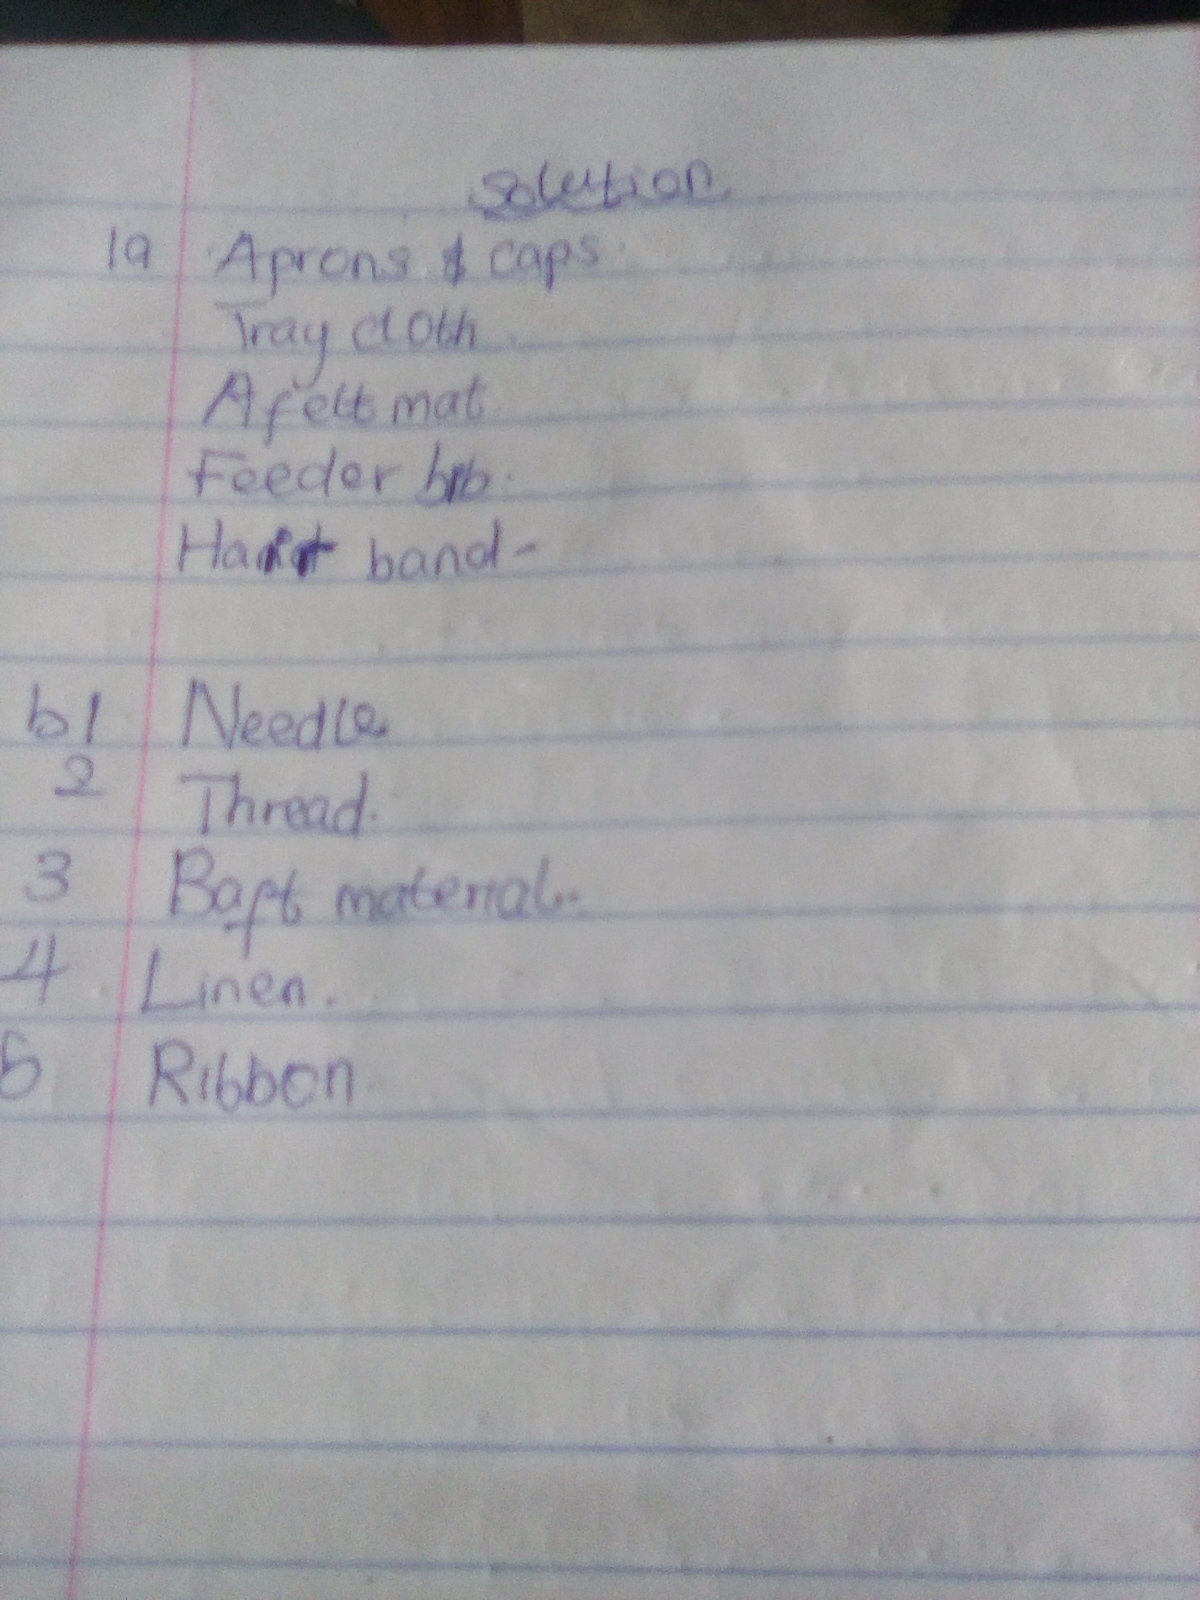 Solution
1a Aprons & caps
Tray cloth
A felt mat
Feeder bib.
Hair band -
b1 Needle
2 Thread.
3 Baft material.
4 Linen.
5 Ribbon